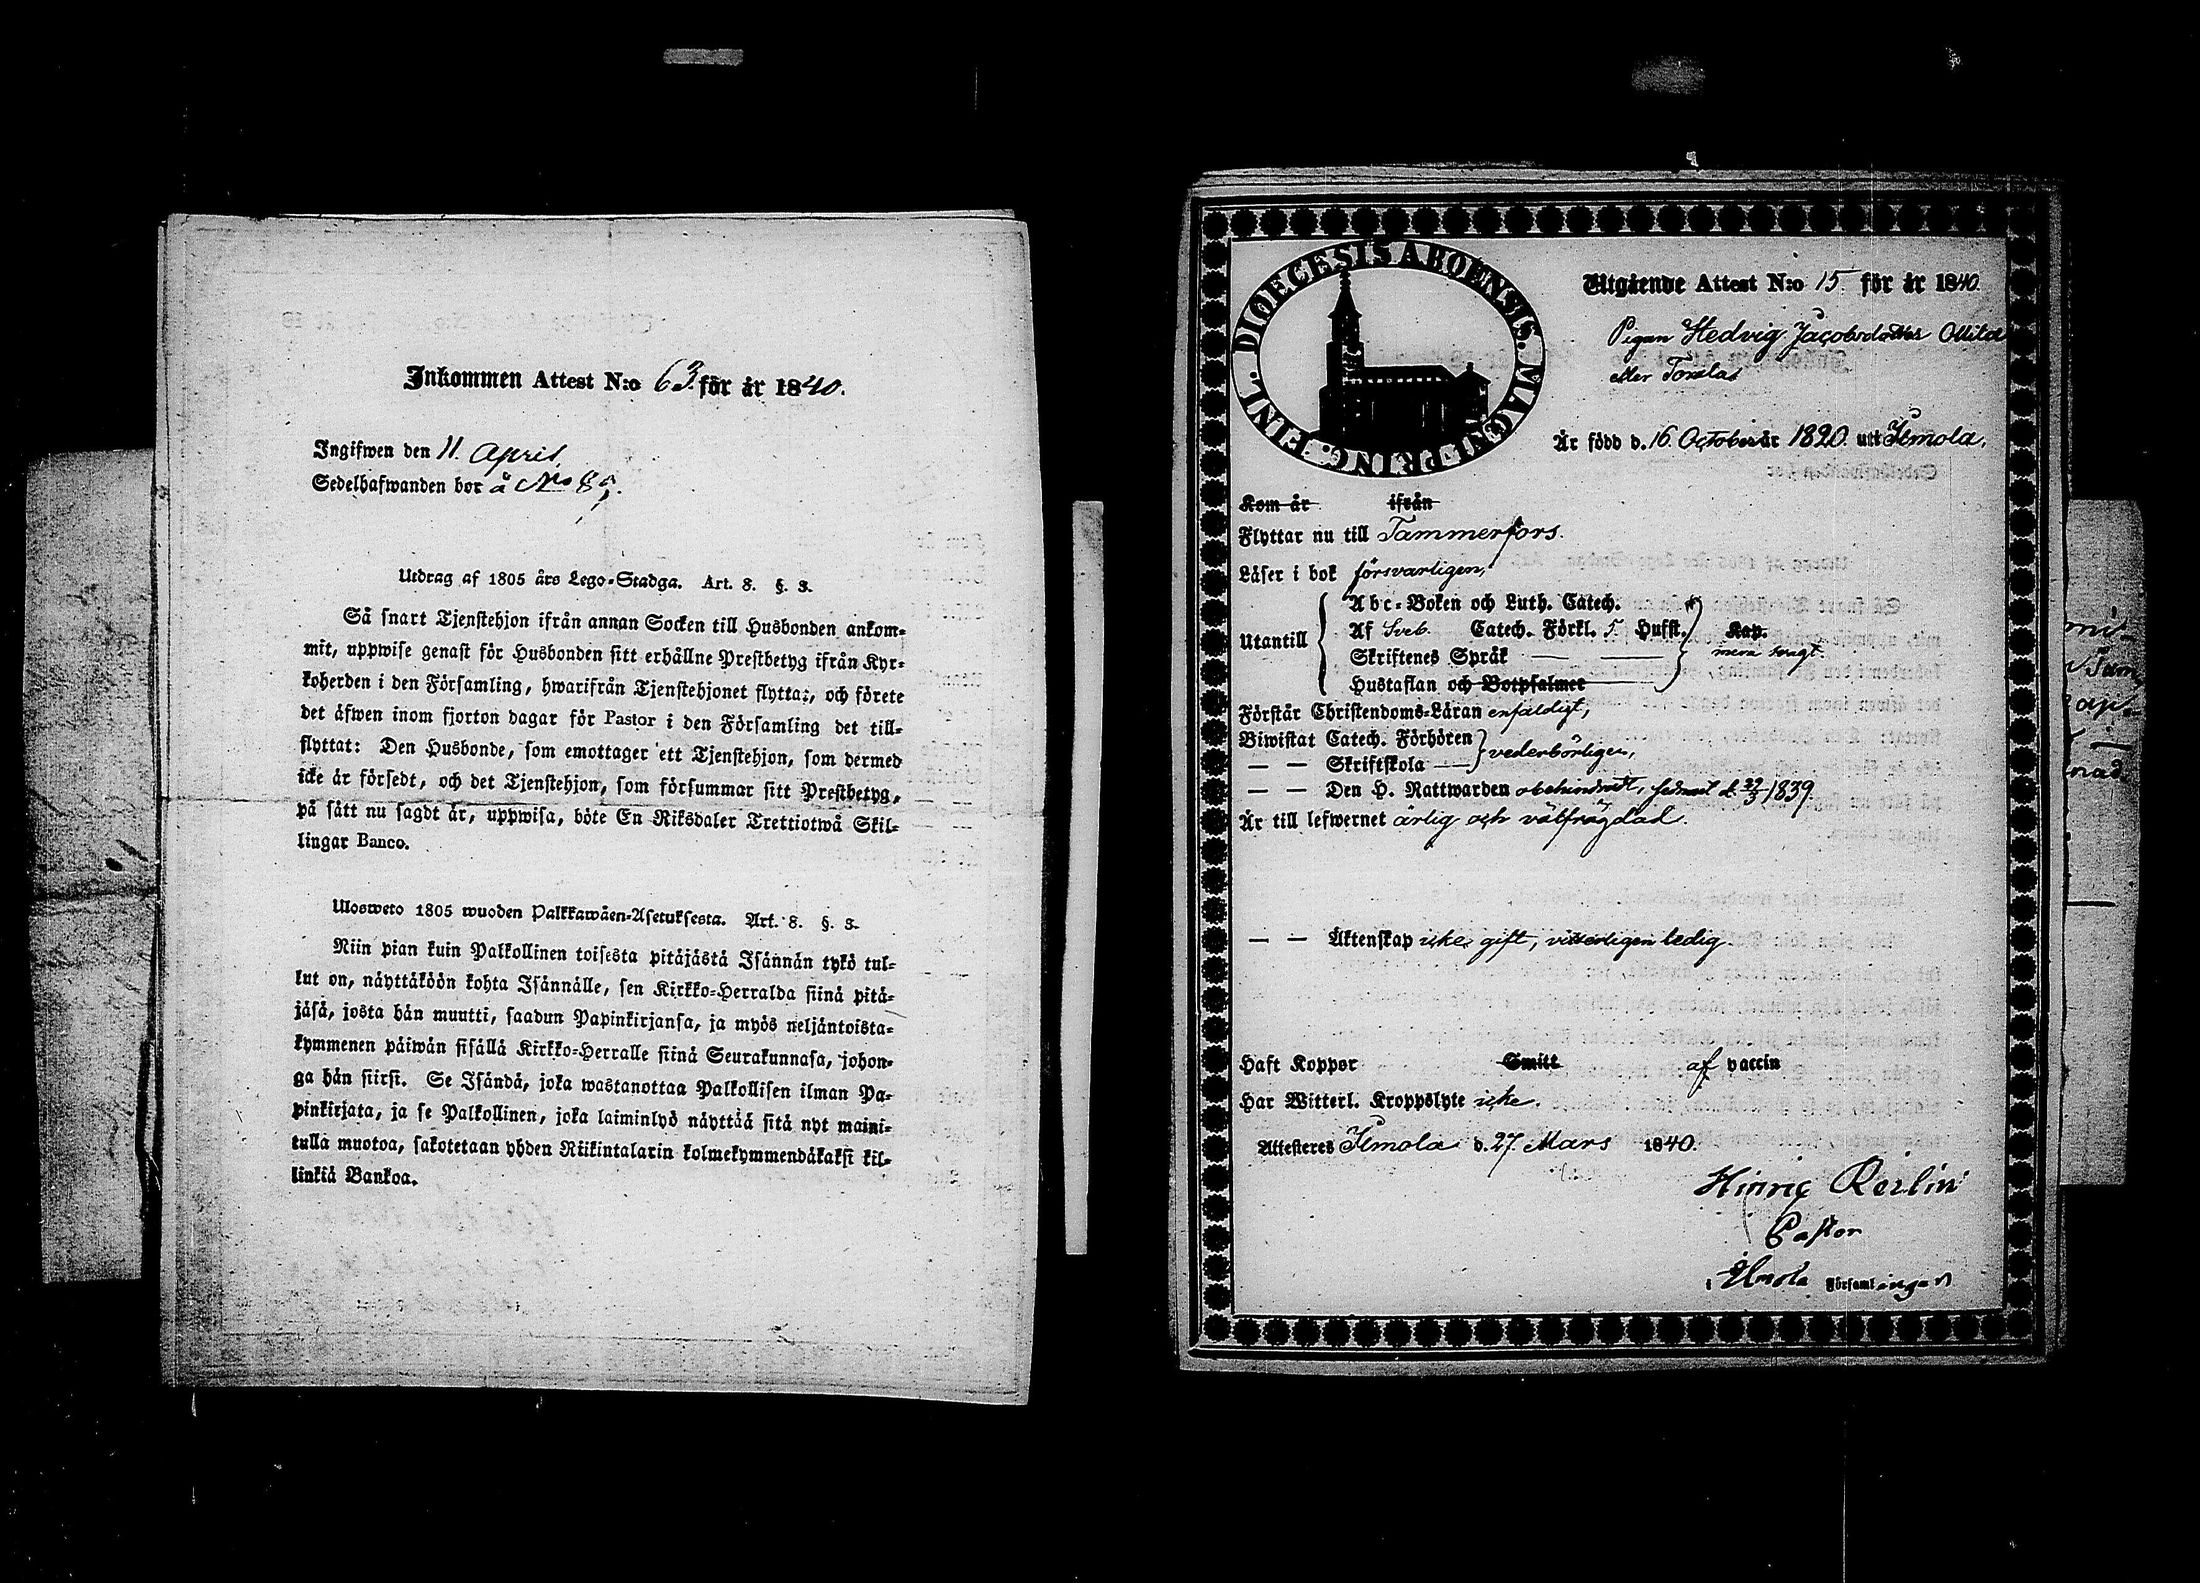 Inkommen Attest N:o 63. för år 1840.
Ingifwen den 11 April
Sedelhafwanden bor å No 89.
Utdrag af 1805 års Lego-Stadga. Art. 8. §. 3.
Så snart Tjenstehjon ifrån annan Socken till Husbonden ankom-
mit, uppwise genast för Husbonden sitt erhållne Prestbetyg ifrån Kyr-
koherden i den Församling, hwarifrån Tjenstehjonet flyttat, och förete
det äfwen inom fjorton dagar för Pastor i den Församling det till-
flyttat: Den Husbonde, som emottager ett Tjenstehjon, som dermed
icke är försedt, och det Tjenstehjon, som försummar sitt Prestbetyg,
på sätt nu sagdt är, uppwisa, böte En Riksdaler Trettiotwå Skil-
lingar Banco.
Ulosweto 1805 wuoden Palkkawäen-Asetuksesta. Art. 8. §. 3.
Niin pian kuin Palkollinen toisesta pitäjästä Isännän tykö tul-
lut on, näyttäköön kohta Isännälle, sen Kirkko-Herralda siinä pitä-
jäsä, josta hän muutti, saadun Papinkirjansa, ja myös neljäntoista-
kymmenen päiwän sisällä Kirkko-Herralle siinä Seurakunnasa, johon-
ga hän siirsi. Se Isändä, joka wastanottaa Palkollisen ilman Pa-
pinkirjata, ja se Palkollinen, joka laiminlyö näyttää sitä nyt maini-
tulla muotoa, sakotetaan yhden Riikintalarin kolmekymmendäkaksi kil-
linkiä Bankoa.
DIOECESIS ABOENSIS. MAGNI PRINC. FINL.
Utgående Attest N:o 15 för år 1840.
Pigan Hedvig Jacobsdotter Ollila
eller Torala
Är född d. 16 October år 1820. uti Ilmola,
Kom år ifrån
Flyttar nu till Tammerfors.
Läser i bok försvarligen,
Utantill
Abc-Boken och Luth. Catech.
Af Sveb. Catech. Förkl. 5. Hufst. Kap.
Skriftenes Språk — — mera svagt.
Hustaflan och Botpsalmer
Förstår Christendoms-Läran enfaldigt,
Biwistat Catech. Förhören
— — Skriftskola — vederbörligen,
— — Den H. Nattwarden obehindradt, sednast d. 22/3 1839.
Är till lefwernet ärlig och välfrägdad.
— — Äktenskap icke gift, vitterligen ledig.
Haft Koppor Smitt af vaccin
Har Witterl. Kroppslyte icke.
Attesteres Ilmola d. 27. Mars 1840.
Hinric Reilin
Pastor
i Ilmola Församlingen